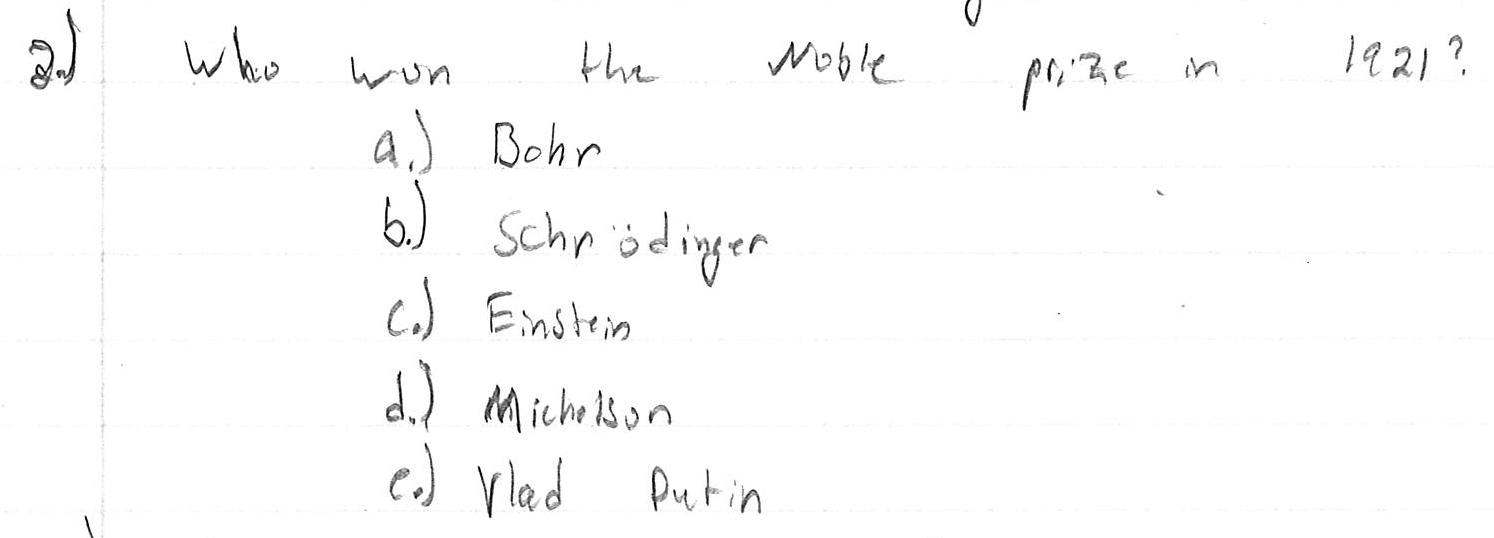 2.) Who won the Noble prize in 1921?
a.) Bohr
b.) Schrödinger
c.) Einstein
d.) Michelson
e.) Vlad Putin